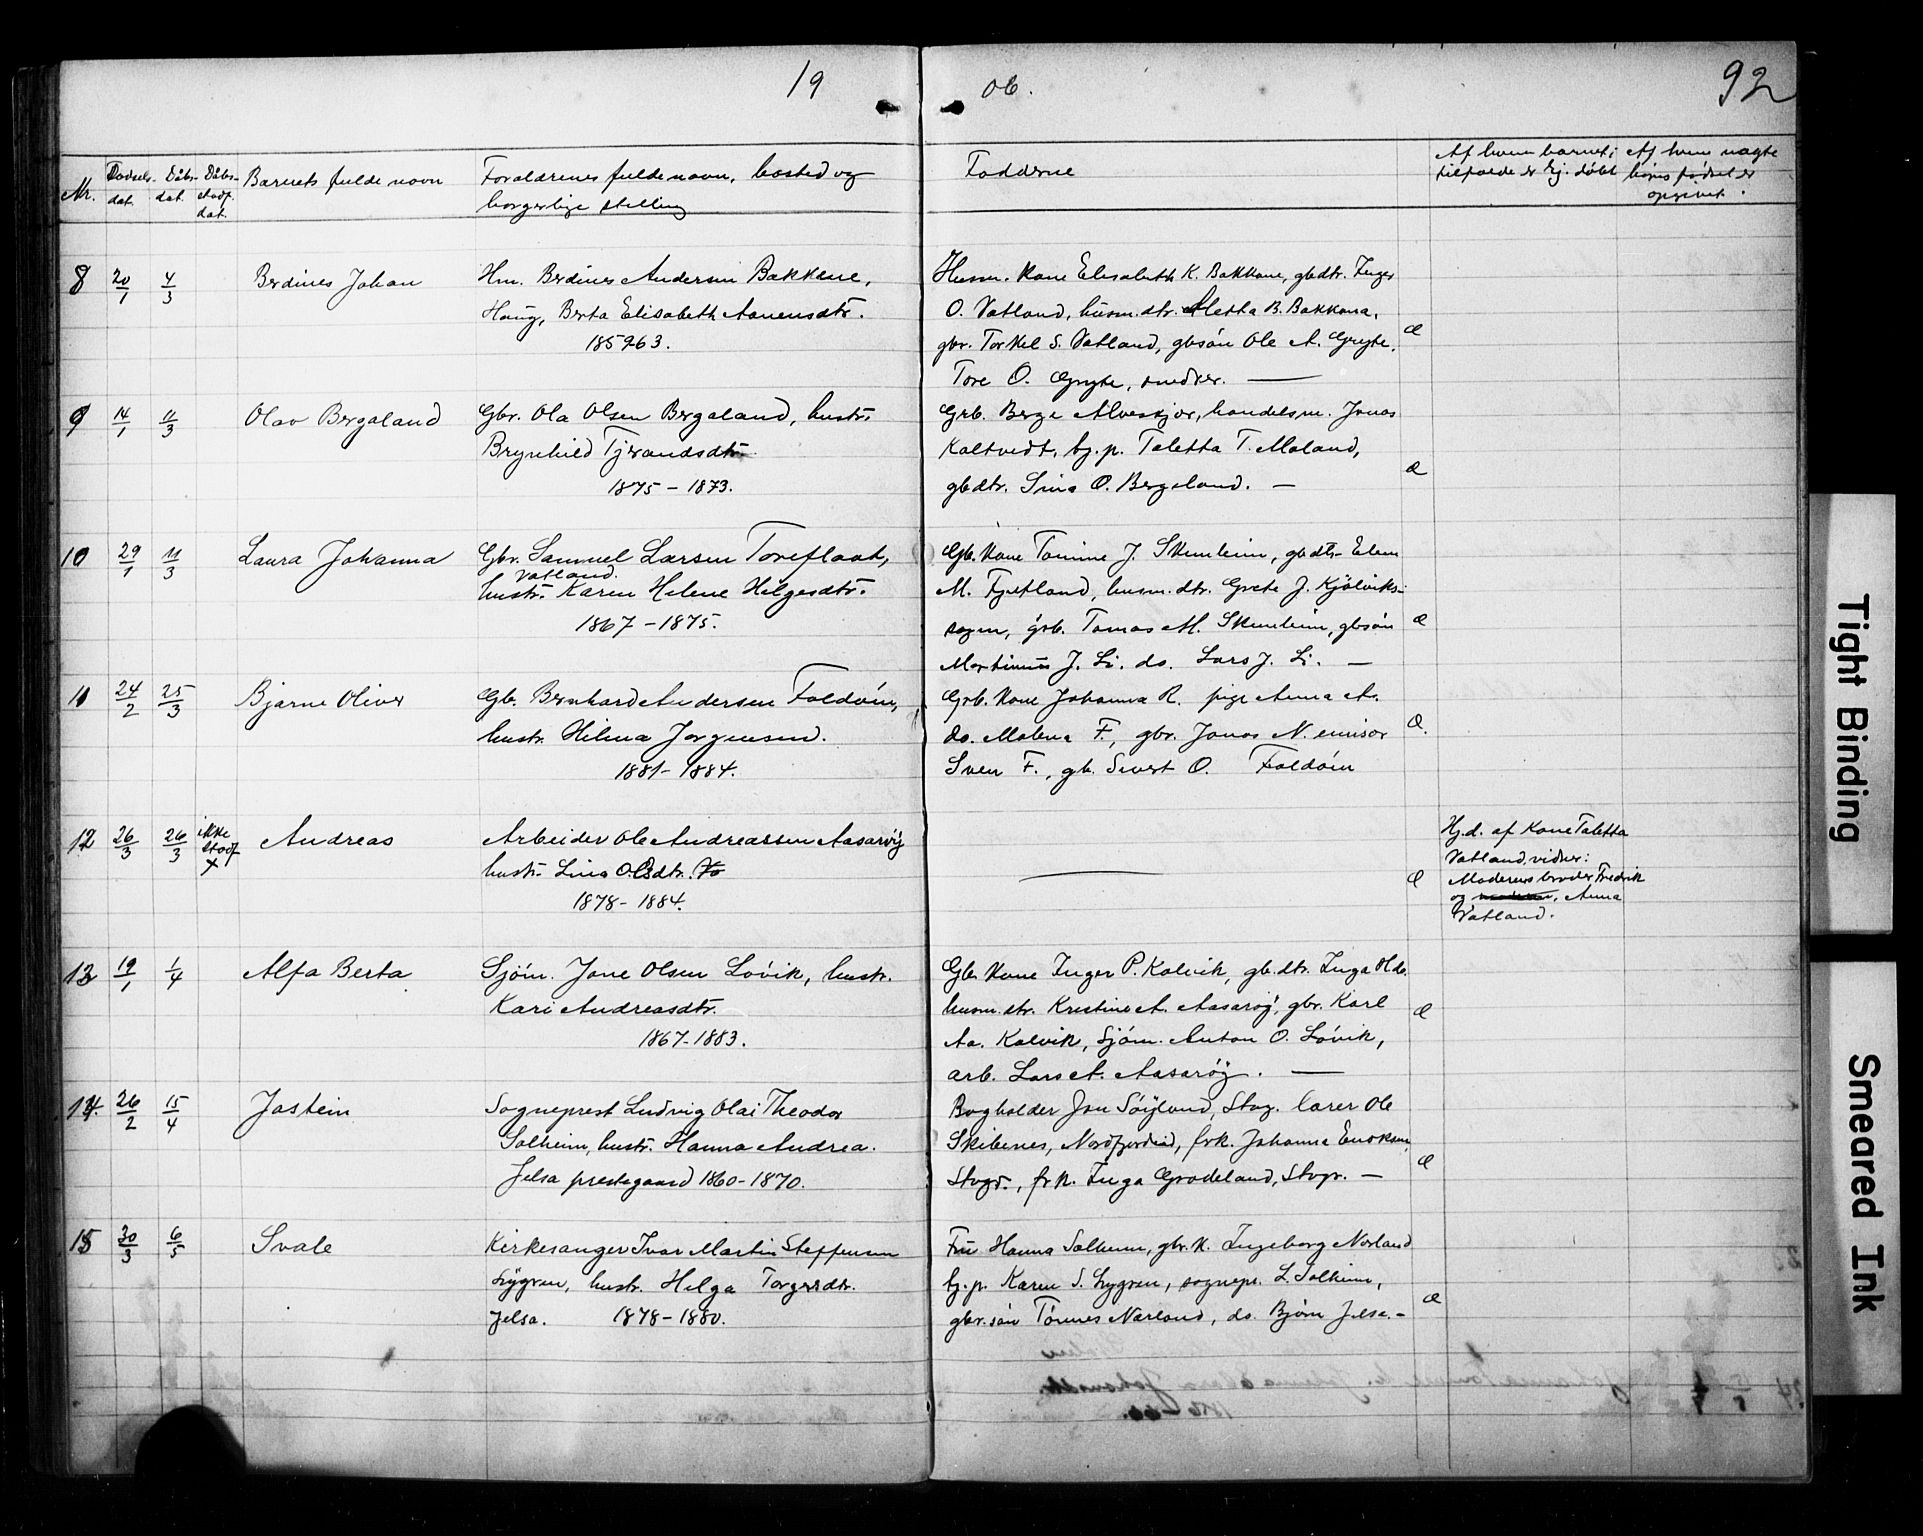 19 06.
92
Nr. Fødsels- dat. Dåbs- dat. Dåbs- stadf. dat. Barnets fulde navn Forældrenes fulde navn, bosted og borgerlige stilling
Fadderne
Af hvem barnet i tilfælde er hj. døbt
Af hvem uægte børns fødsel er opgivet.
8 20/1 4/3 Berdines Johan
Hm. Berdines Andersen Bakkene,
Haug, Berta Elisabeth Aanensdtr.
1859 63.
Husm. kone Elisabeth K. Bakkane, gbdtr. Inger
O. Vatland, husm. dtr. Aletta B. Bakkana,
gbr. Torkel S. Vatland, gbsøn Ole A. Gryte,
Tore O. Gryte, snedker. —
9 14/1 11/3 Olav Bergaland
Gbr. Ola Olsen Bergaland, hustr.
Brynhild Tjerandsdtr.
1875 - 1873.
Grb. Berge Alveskjer, handelsm. Jonas
Kaltvedt, bg. p. Taletta T. Maland,
gbdtr. Sina O. Bergaland. —
10 29/1 11/3 Laura Johanna
Gbr. Samuel Larsen Toreflaat,
Vatland.
hustr. Karen Helene Helgesdtr.
1867 - 1875.
Gb. kone Tomine J. Skimleim, gbdtr. Elen
M. Fjetland, husm. dtr. Grete J. Kjølviks-
ragen, grb. Tomas M. Skimleim, gbsøn
Martinius J. Li. do. Lars J. Li. —
11 24/2 25/3 Bjarne Oliver
Gb. Bernhard Andersen Foldøin,
hustr. Hilma Jorgensend.
1881 - 1884.
Grb. kone Johanna R. pige Anna A.
do. Malena F., gbr. Jonas N. emisær
Sven F., gb. Sivert O. Foldøin
12 26/3 26/3 ikke stadf x Andreas
Arbeider Ole Andreassen Aasarøy
hustr. Lina Olsdtr.
1878 - 1884.
Hj.d. af kone Taletta
Vatland, vidner:
Moderens broder Fredrik
og Anna
Vatland.
13 19/1 1/4 Alfa Berta
Sjøm. Jone Olsen Løvik, hustr.
Kari Andreasdtr.
1867 - 1883.
Gb. kone Inger P. Kalvik, gb.dtr. Inga do.
husm. dtr. Kristine A. Aasarøy, gbr. Karl
Aa. Kalvik, Sjøm. Anton O. Løvik,
arb. Lars A. Aasarøy. —
14 26/2 15/4 Jostein
Sogneprest Ludvig Olai Theodor
Solheim, hustr. Hanna Andrea.
Jelsa prestegaard 1860 - 1870.
Bogholder Jon Søyland, Stvg. lærer Ole
Skibenes, Nordfjordeid, frk. Johanna Enoksen,
Stvgr., frk. Inga Grødeland, Stvgr. —
15 30/3 6/5 Svale
Kirkesanger Ivar Martin Steffensen
Lygren, hustr. Helga Torgersdtr.
Jelsa. 1878 - 1880.
Fru Hanna Solheim, gbr. k. Ingeborg Nærland
bg. p. Karen S. Lygren, sognepr. L. Solheim,
gbr. søn Tønnes Nærland, do. Bjørn Jelsa. -
Tight Binding
Smeared Ink